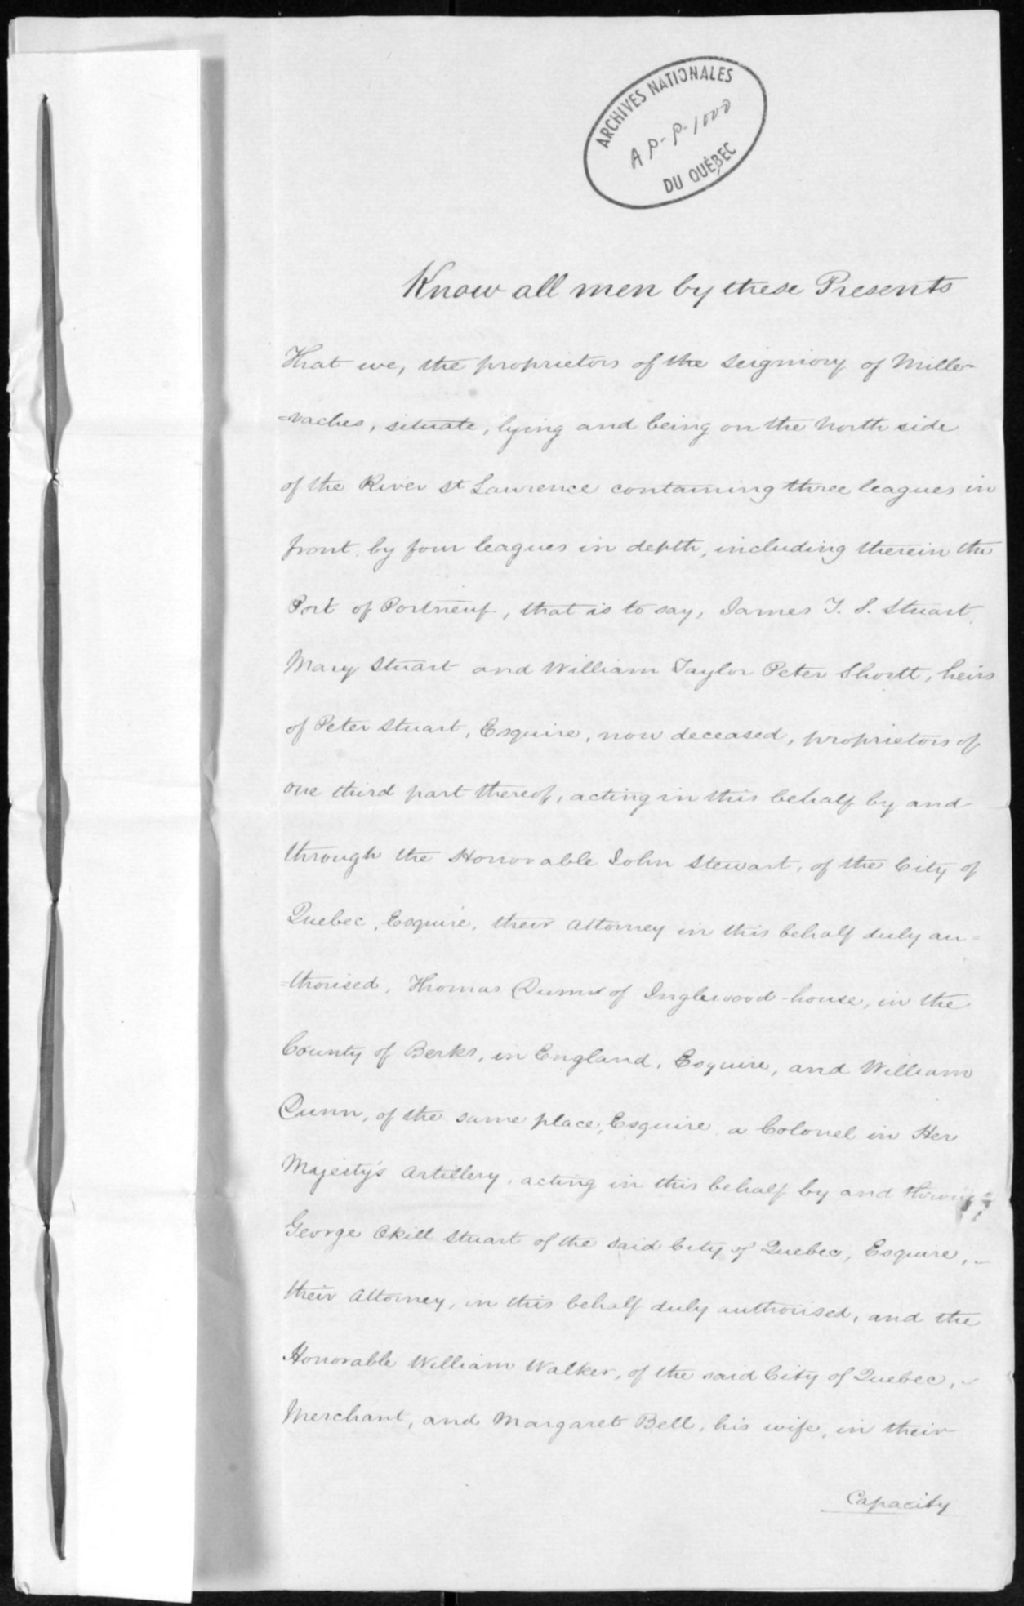 ARCHIVES NATIONALES
AP-P-1000
DU QUÉBEC
Know all men by these Presents
That we, the proprietors of the Seigniory of Mille-
-vaches, situate, lying and being on the North side
of the River St Lawrence containing three leagues in
front by four leagues in depth, including therein the
Port of Portneuf, that is to say, James T. S. Stuart,
Mary Stuart and William Taylor Peter Shortt, heirs
of Peter Stuart, Esquire, now deceased, proprietors of
one third part thereof, acting in this behalf by and
through the Honorable John Stewart, of the City of
Quebec, Esquire, their Attorney in this behalf duly au=
-thorised, Thomas Dunn of Inglewood-house, in the
County of Berks, in England, Esquire, and William
Dunn, of the same place, Esquire, a Colonel in Her
Majesty's Artillery, acting in this behalf by and through
George Okill Stuart of the said City of Quebec, Esquire,
their Attorney, in this behalf duly authorised, and the
Honorable William Walker, of the said City of Quebec,
Merchant, and Margaret Bell, his wife, in their
Capacity